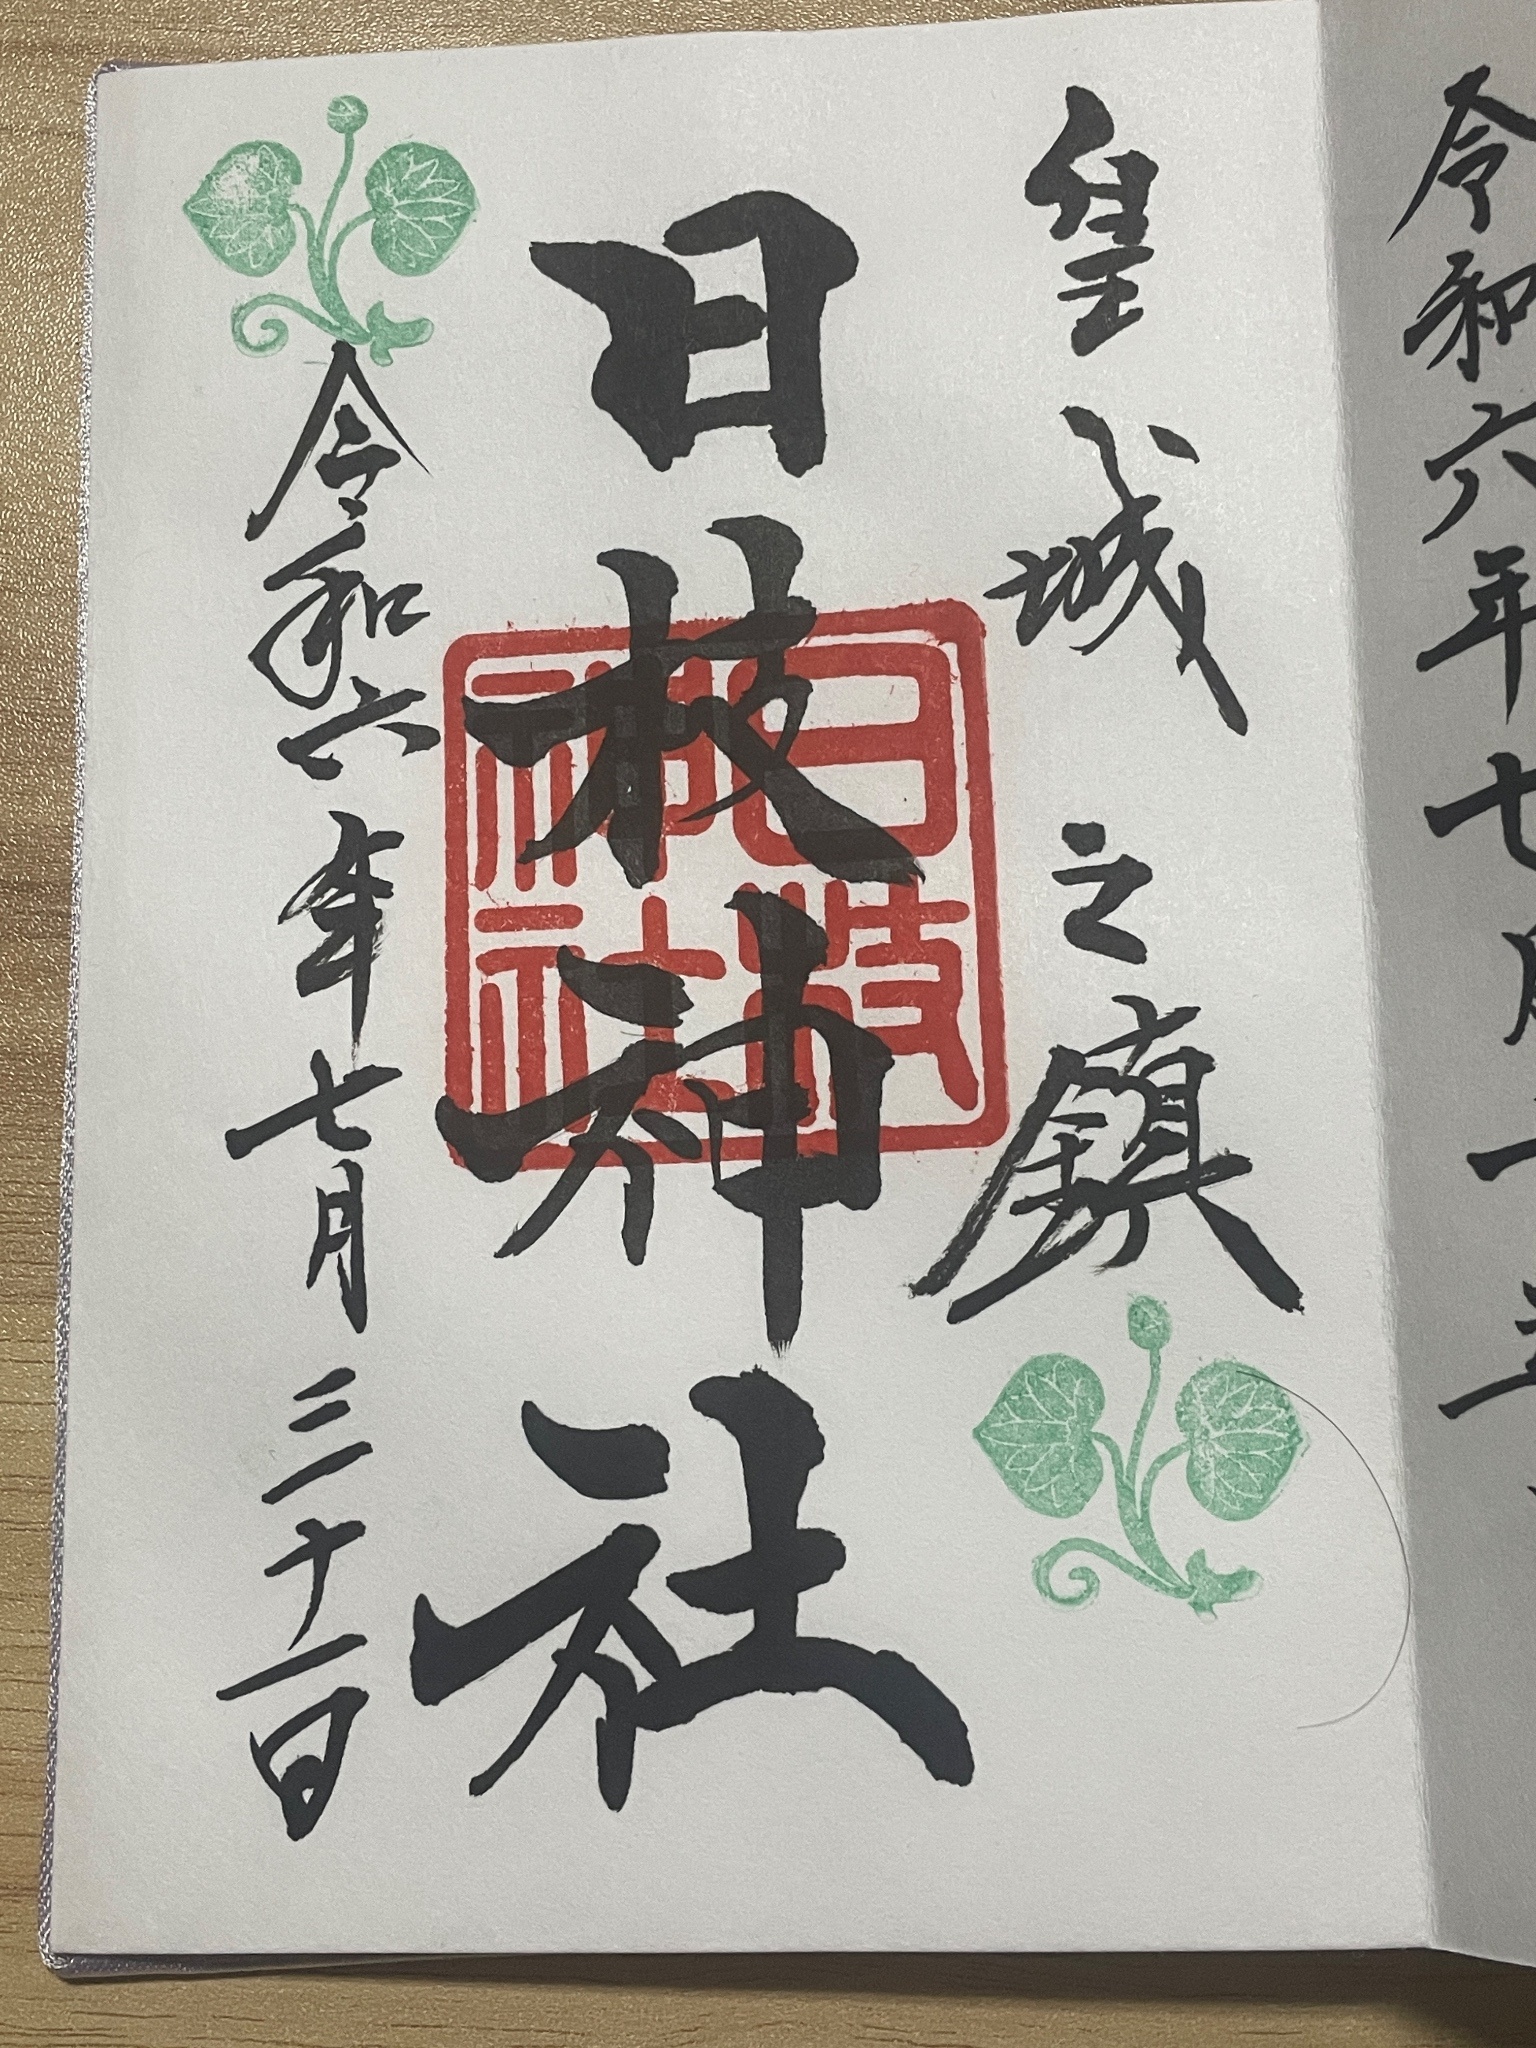 令和六年七月
皇城之鎮
日枝神社
日枝
神社
令和六年七月三十一日